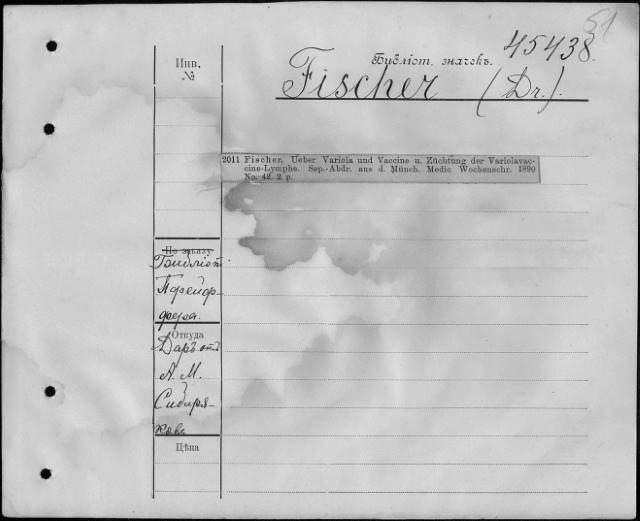 51
45438.
Библіот. значекъ.
Инв.
№
Fischer (Dr.).
2011 Fischer, Ueber Variola und Vaccine u. Züchtung der Variolavac-
cine-Lymphe. Sep.-Abdr. aus d. Münch. Medic Wochenschr. 1890
No. 42. 2 p.
По заказу
Библіот
Пфейф-
фера.
Откуда
Даръ отъ
А. М.
Сибиря-
кова
Цѣна